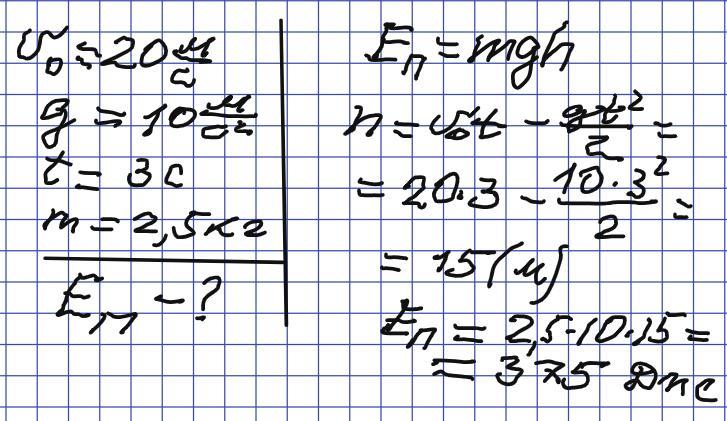 υ₀ = 20 м/с
g = 10 м/с²
t = 3 с
m = 2,5 кг
Eп - ?
Eп = mgh
h = υ₀t - gt²/2 =
= 20·3 - 10·3²/2 =
= 15 (м)
Eп = 2,5·10·15 =
= 375 Дж